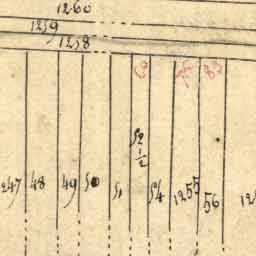 1260
1259
1258
1247
48
49
50
51
52½
54
1255
56